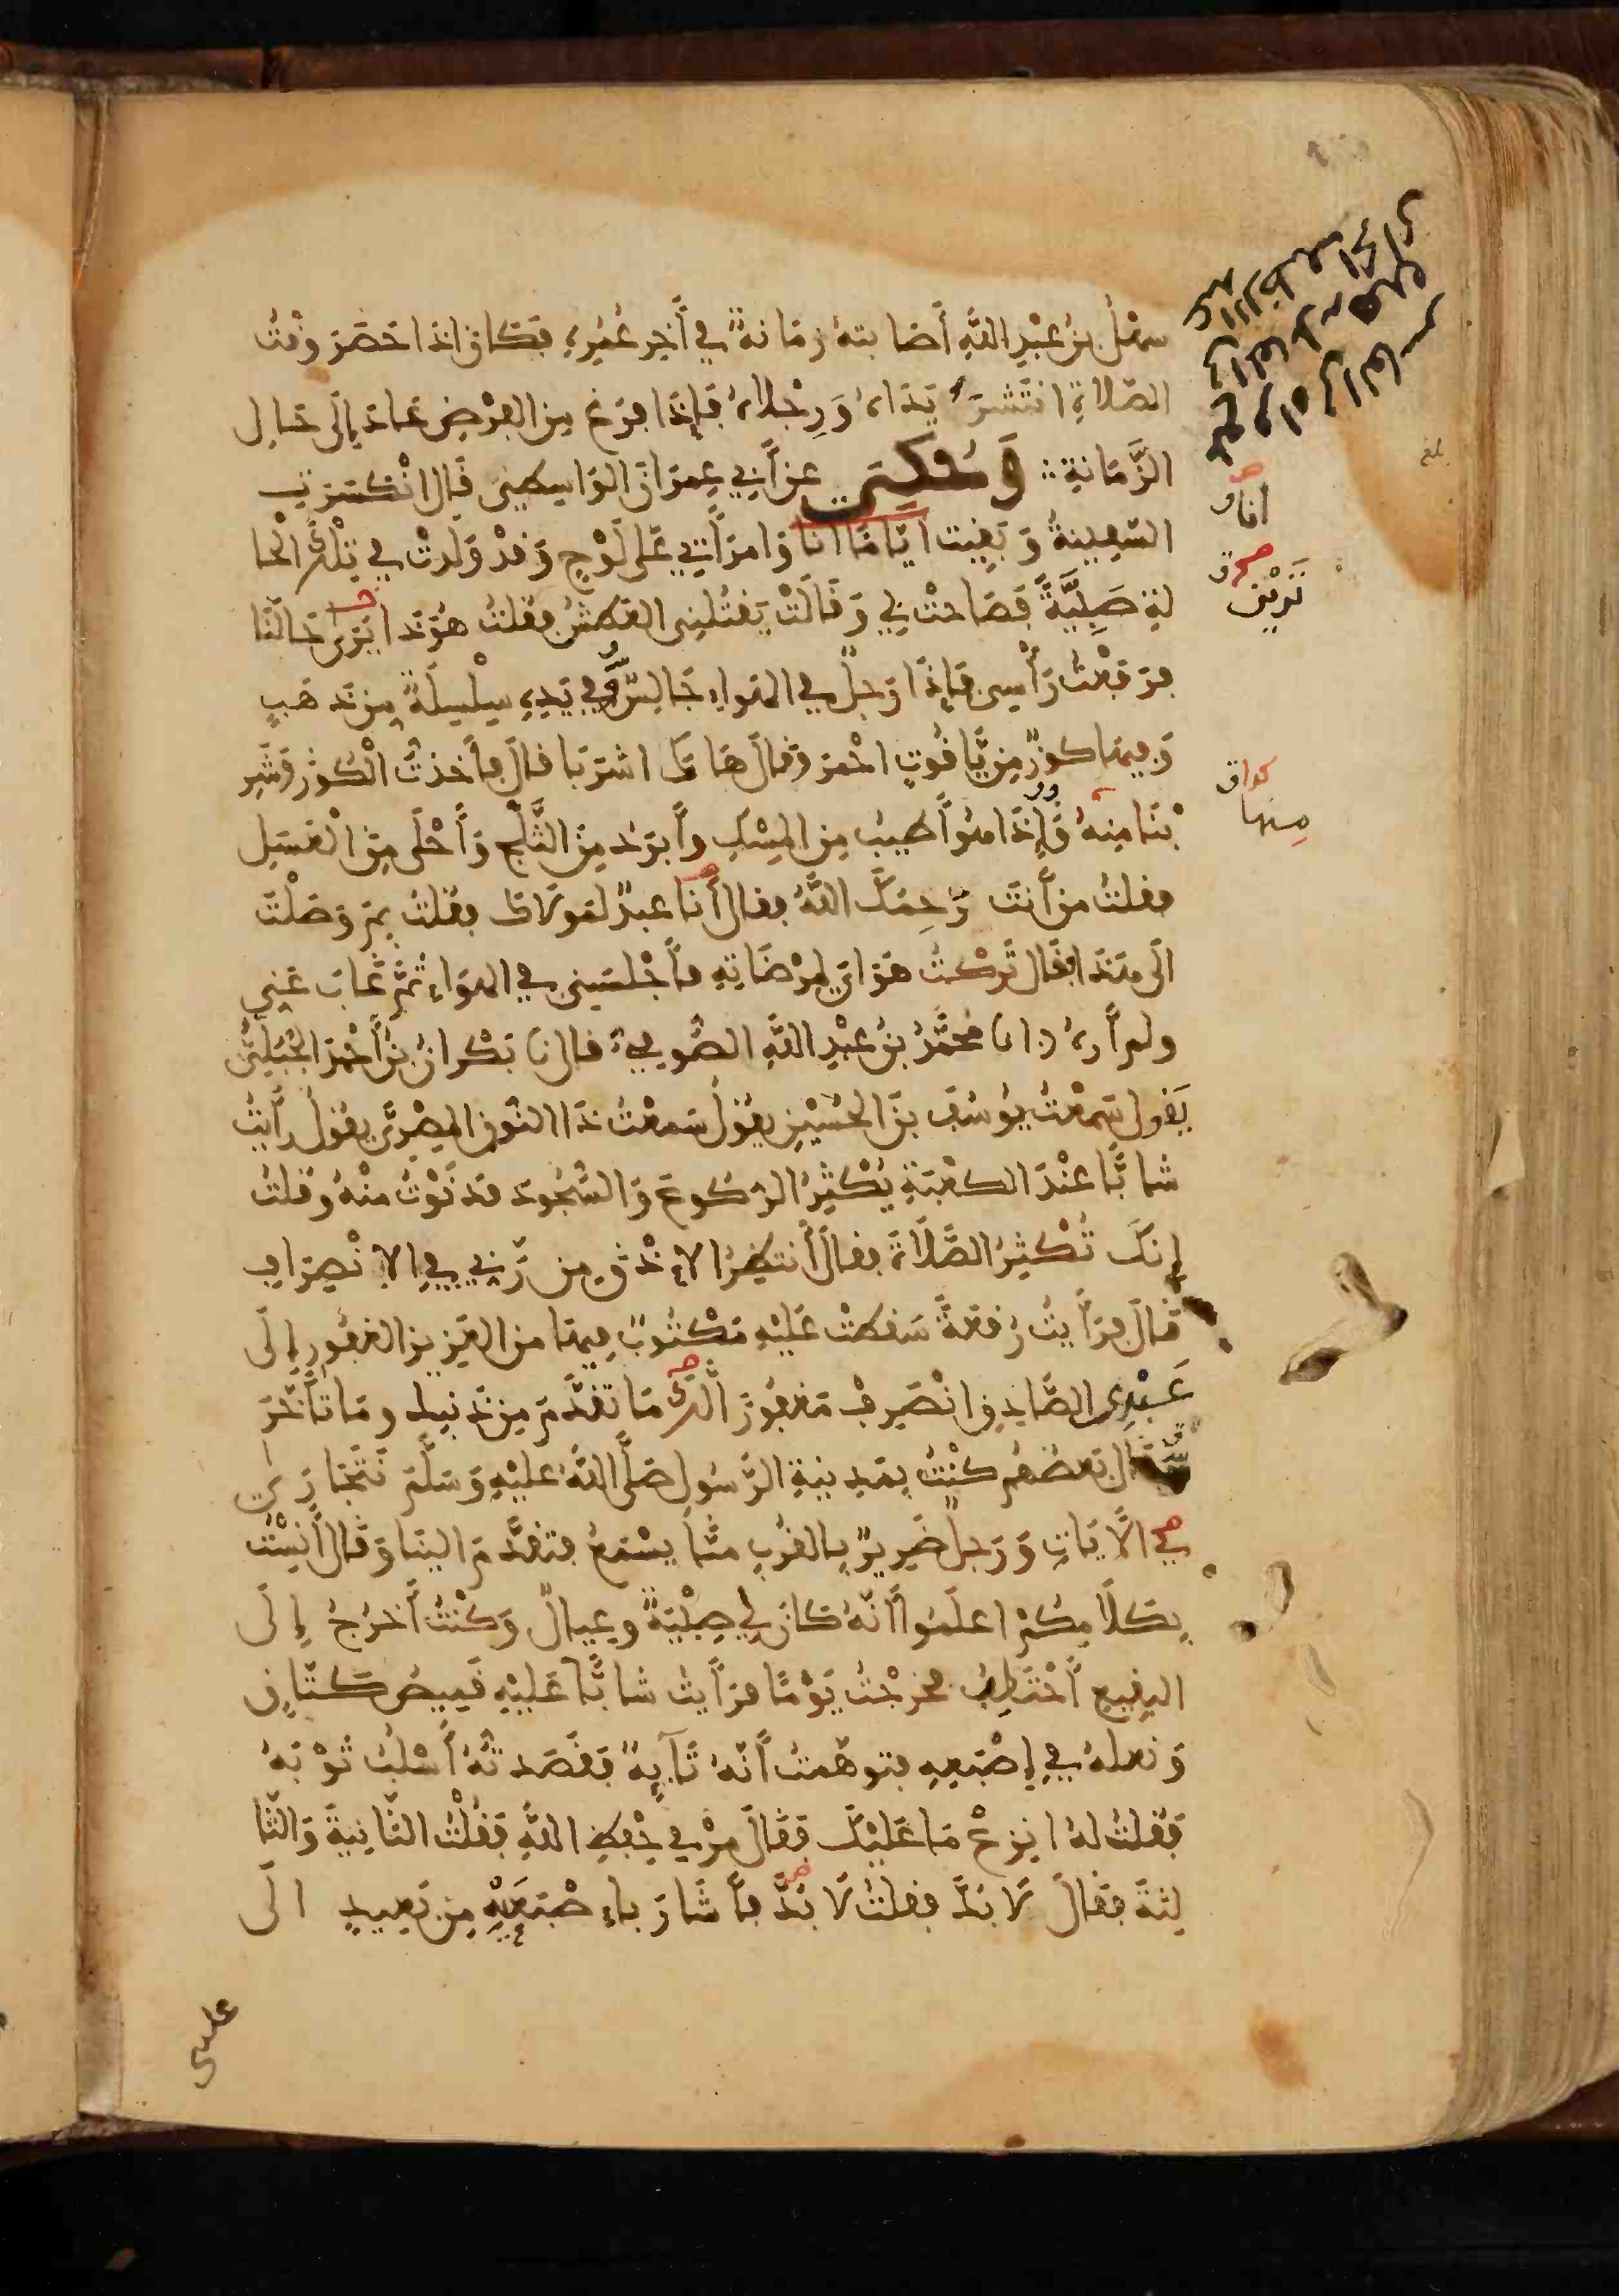 سهل بن عبد الله أصابته زمانة في آخر عمره فكان إذا حضر وقت
الصلاة انتشر يداه ورجلاه فإذا فرغ من الفرض عاد إلى حال
الزمانة وحكي عن أبي عمران الواسطي قال انكسرت
السفينة وبقيت أياما أنا وامرأتي على لوح وقد ولدت في تلك الحا
لة صبية فصاحت بي وقالت يقتلني العطش فقلت هوذا يرى حالنا
فرفعت رأسي فإذا رجل في الهواء جالس وفي يده سلسلة من ذهب
وفيها كوز من ياقوت احمر وقال هاك اشربا قال فأخذت الكوز وشر
بنا منه فإذا هو أطيب من المسك وأبرد من الثلج وأحلى من العسل
فقلت من أنت رحمك الله فقال أنا عبد لمولاك فقلت بم وصلت
الى هذا فقال تركت هواي لمرضاته فأجلسني في الهواء ثم غاب عني
ولم أره انا محمد بن عبد الله الصوفي قال نا بكران بن أحمد الجيلي
يقول سمعت يوسف بن الحسين يقول سمعت ذا النون المصري يقول رأيت
شابا عند الكعبة يكثر الركوع والسجود فدنوت منه وقلت
إنك تكثر الصلاة فقال أنتظر الإذن من ربي في الانصراف
قال فرأيت رقعة سقطت عليه مكتوب فيها من العزيز الغفور إلى
عبدي الصادق انصرف مغفورا لك ما تقدم من ذنبك وما تأخر
وقال بعضهم كنت بمدينة الرسول صلى الله عليه وسلم نتجارى
في الآيات ورجل ضرير بالقرب منا يسمع فتقدم الينا وقال أنست
بكلامكم اعلموا أنه كان لي صبية وعيال وكنت أخرج إلى
البقيع أحتطب فخرجت يوما فرأيت شابا عليه قميص كتان
ونعله في إصبعه فتوهمت أنه تائه فقصدته أسلب ثوبه
فقلت له انزع ما عليك فقال مر في حفظ الله فقلت الثانية والثا
لثة فقال لا بد فقلت لا بد فأشار بإصبعيه من بعيد الى